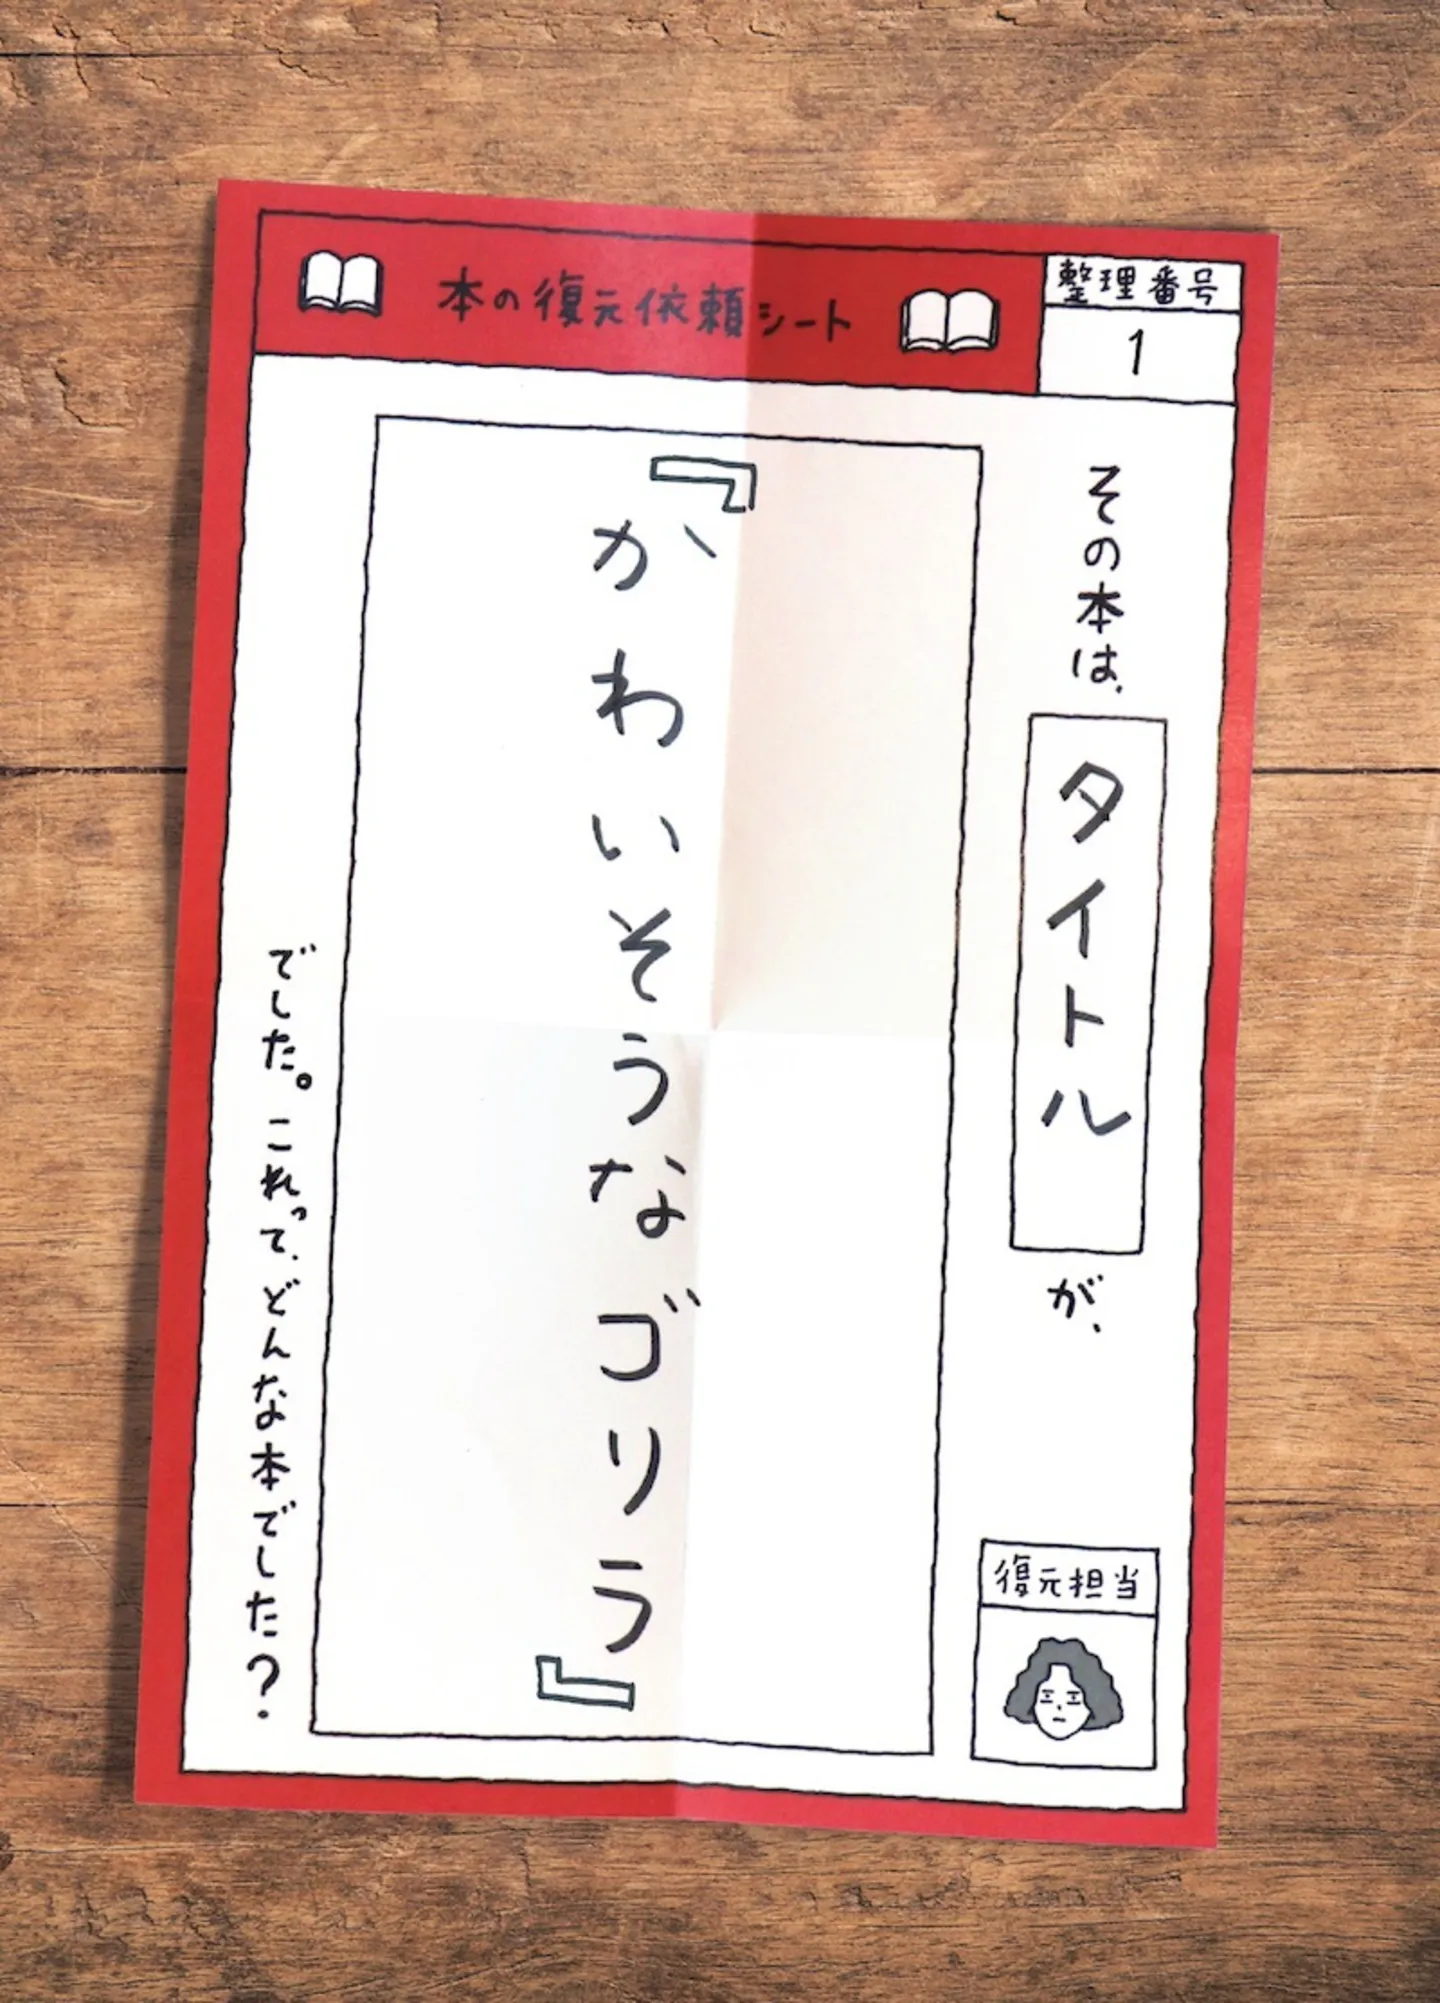 本の復元依頼シート
整理番号
1
その本は、
タイトル
が、
『かわいそうなゴリラ』
でした。これって、どんな本でした?
復元担当